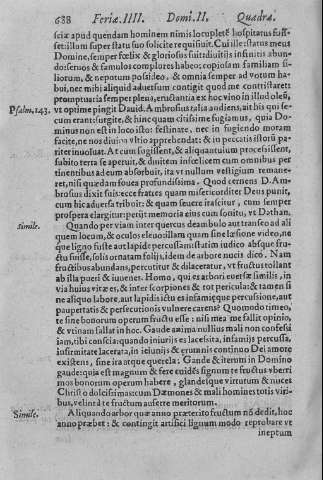 688 Feriæ. IIII. Domi. II. Quadra.
sciæ apud quendam hominem nimis locupletē hospitatus fuisset: illum super statu suo solicite requisiuit. Cui ille: status meus
Domine, semper fœlix & gloriosus fuit: diuitijs infinitis abundo: seruos & famulos complures habeo: copiosam familiam filiorum, & nepotum possideo. & omnia semper ad votum habui, nec mihi aliquid aduersum contigit quod me contristaret:
promptuaria semper plena, eructantia ex hoc vino in illud oleū,
Psalm. 143. vt opime pingit Dauid. Ambrosius talia audiens, ait his qui secum erant: surgite, & hinc quam citissime fugiamus, quia Dominus non est in loco isto: festinate, nec in fugiendo moram
facite, ne nos diuina vltio apprehendat: & in peccatis istorū pariter inuoluat. At cum fugissent, & aliquantulum processissent,
subito terra se aperuit, & diuitem infelicem cum omnibus pertinentibus ad eum absorbuit, ita vt nullum vestigium remaneret, nisi quædam fouea profundissima. Quod cernens D. Ambrosius dixit suis: ecce fratres quam misericorditer Deus punit,
cum hic aduersa tribuit: & quam seuere irascitur, cum semper
prospera elargitur: perijt memoria eius cum sonitu, vt Dathan.
Simile. Quando per viam inter quercus deambulo aut transeo ad aliquem locum, & oculos eleuo: illam quam sine læsione video, neque ligno fuste aut lapide percussam: statim iudico absque fructu fuisse, solis ornatam folijs, idem de arbore nucis dico. Nam
fructibus abundans, percutitur & dilaceratur, vt fructus tollant
ab illa pueri & iuuenes. Homo, qui es arbori euersæ similis, in
via huius vitæ es, & inter scorpiones & tot pericula: & tamen si
ne aliquo labore, aut lapidis ictu es infamięque percussione, aut
paupertatis & persecutionis vulnere carens? Quomodo timeo,
te sine bonorum operum fructu esse: nisi mea me fallit opinio,
& vtinam fallat in hoc. Gaude anima nullius mali non confessi
iam, tibi conscia: quando iniurijs es lacessita, infamijs percussa,
infirmitate lacerata, in ieiunijs & erumnis continuo Dei amore
existens, sine ira atque querela: Gaude & iterum in Domino
gaude: quia est magnum & fere euidēs signum te fructus vberrimos bonorum operum habere, glandesque virtutum & nuces
Christo dolcissimas: cum Dæmones & mali homines totis viribus, velint à te fructum auferre meritorum.
Simile. Aliquando arbor quæ anno præterito fructum nō dedit, hoc
anno præbet: & contingit artifici lignum modo reprobare vt
ineptum